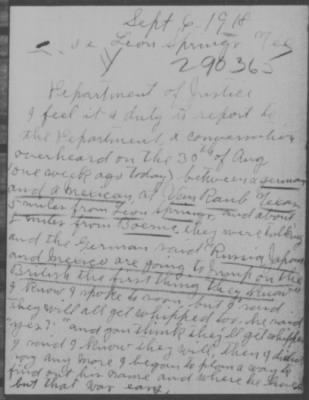 Sept 6- 1918
Leon Springs Tex
290365
Department of Justice
I feel it a duty to report to
the Department, a conversation
overheard on the 30th of Aug
(one week ago today) between a German
and a Mexican, at Van Raub Texas
5 miles from Leon Springs, and about
5 miles from Boerne, they were talking
and the German said "Russia, Japan
and Mexico are going to jump on the
British the first thing they know"
I know I spoke to soon, but I said
They will all get whipped too, he said
"yes?" and you think they'll get whipped
I said I know they will, then I didn't
say any more I began to plan a way to
find out his name and where he lived
but that was easy,